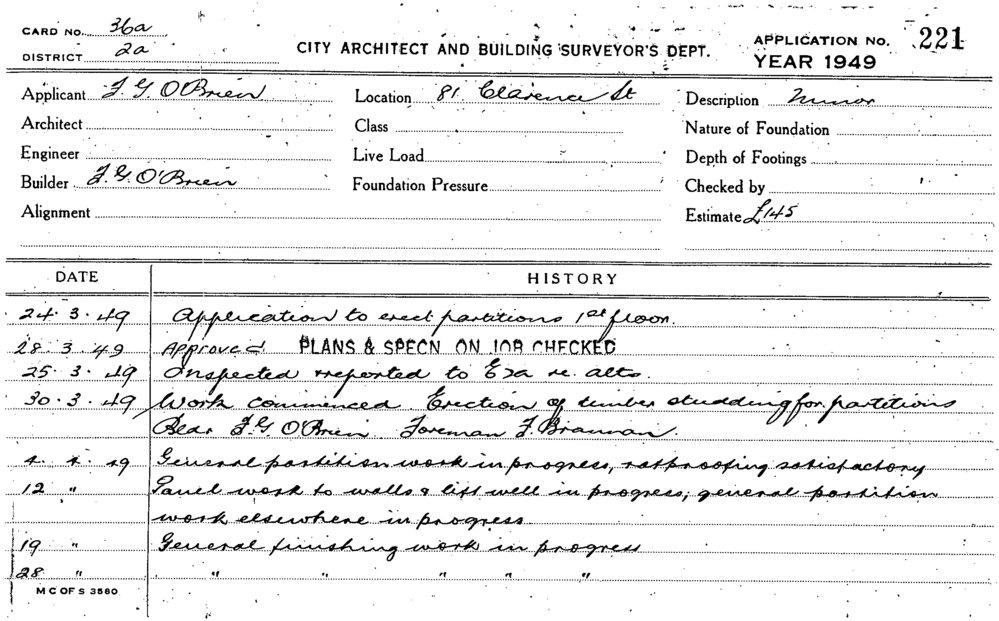 CARD NO. 36a
DISTRICT 2a
CITY ARCHITECT AND BUILDING SURVEYOR'S DEPT.
APPLICATION NO. 221
YEAR 1949
Applicant F. G. O'Brien Location 81 Clarence St Description Minor
Architect Class Nature of Foundation
Engineer Live Load Depth of Footings
Builder F. G. O'Brien Foundation Pressure Checked by
Alignment Estimate £145
DATE HISTORY
24. 3. 49 Application to erect partitions 1st floor.
28. 3. 49 Approved PLANS & SPECN ON JOB CHECKED
25. 3. 49 Inspected & reported to re. alts.
30. 3. 49 Work commenced Erection of timber studding for partitions
Bldr F. G. O'Brien Foreman F. Brannan.
4. 4. 49 General partition work in progress, ratproofing satisfactory
12 " Panel work to walls & lift well in progress; general partition
work elsewhere in progress.
19 " General finishing work in progress
28 " " " " " "
M C OF S 3560